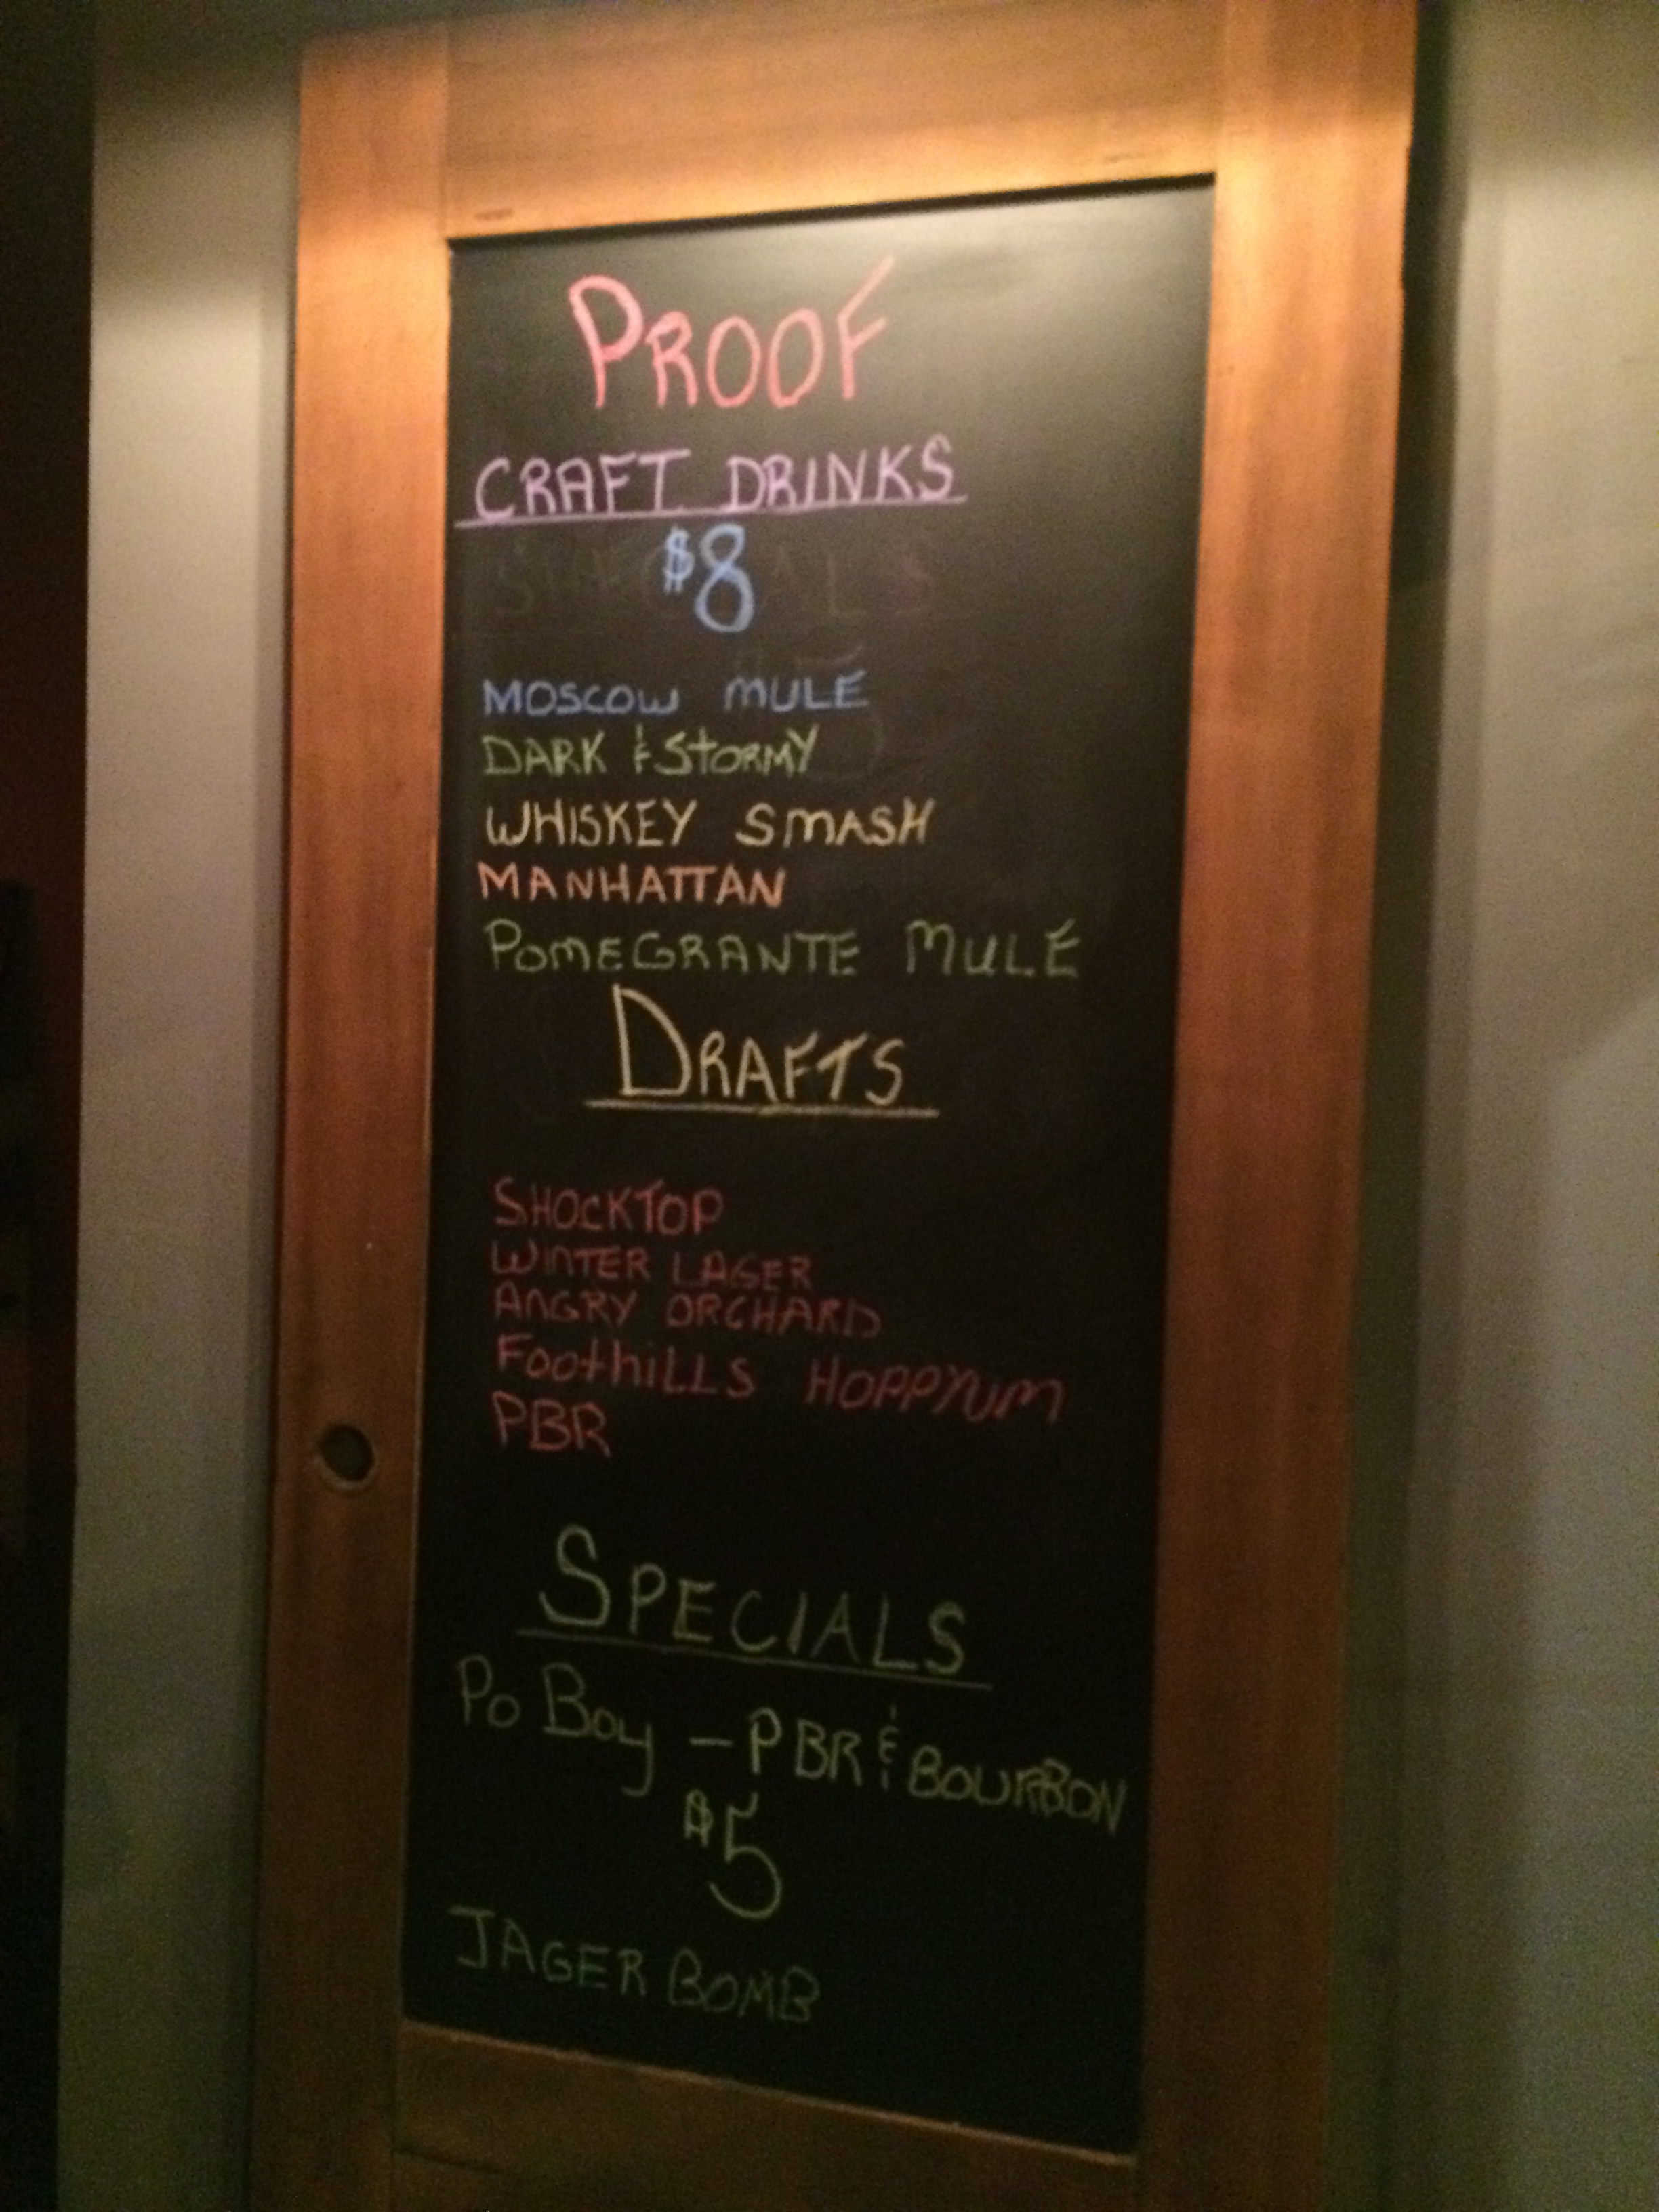 PROOF
CRAFT DRINKS
$8
MOSCOW MULE
DARK & STORMY
WHISKEY SMASH
MANHATTAN
POMEGRANTE MULE
DRAFTS
SHOCKTOP
WINTER LAGER
ANGRY ORCHARD
FOOthiLLS HOPPYUM
PBR
SPECIALS
Po Boy - PBR & BOURBON
$5
JAGER BOMB